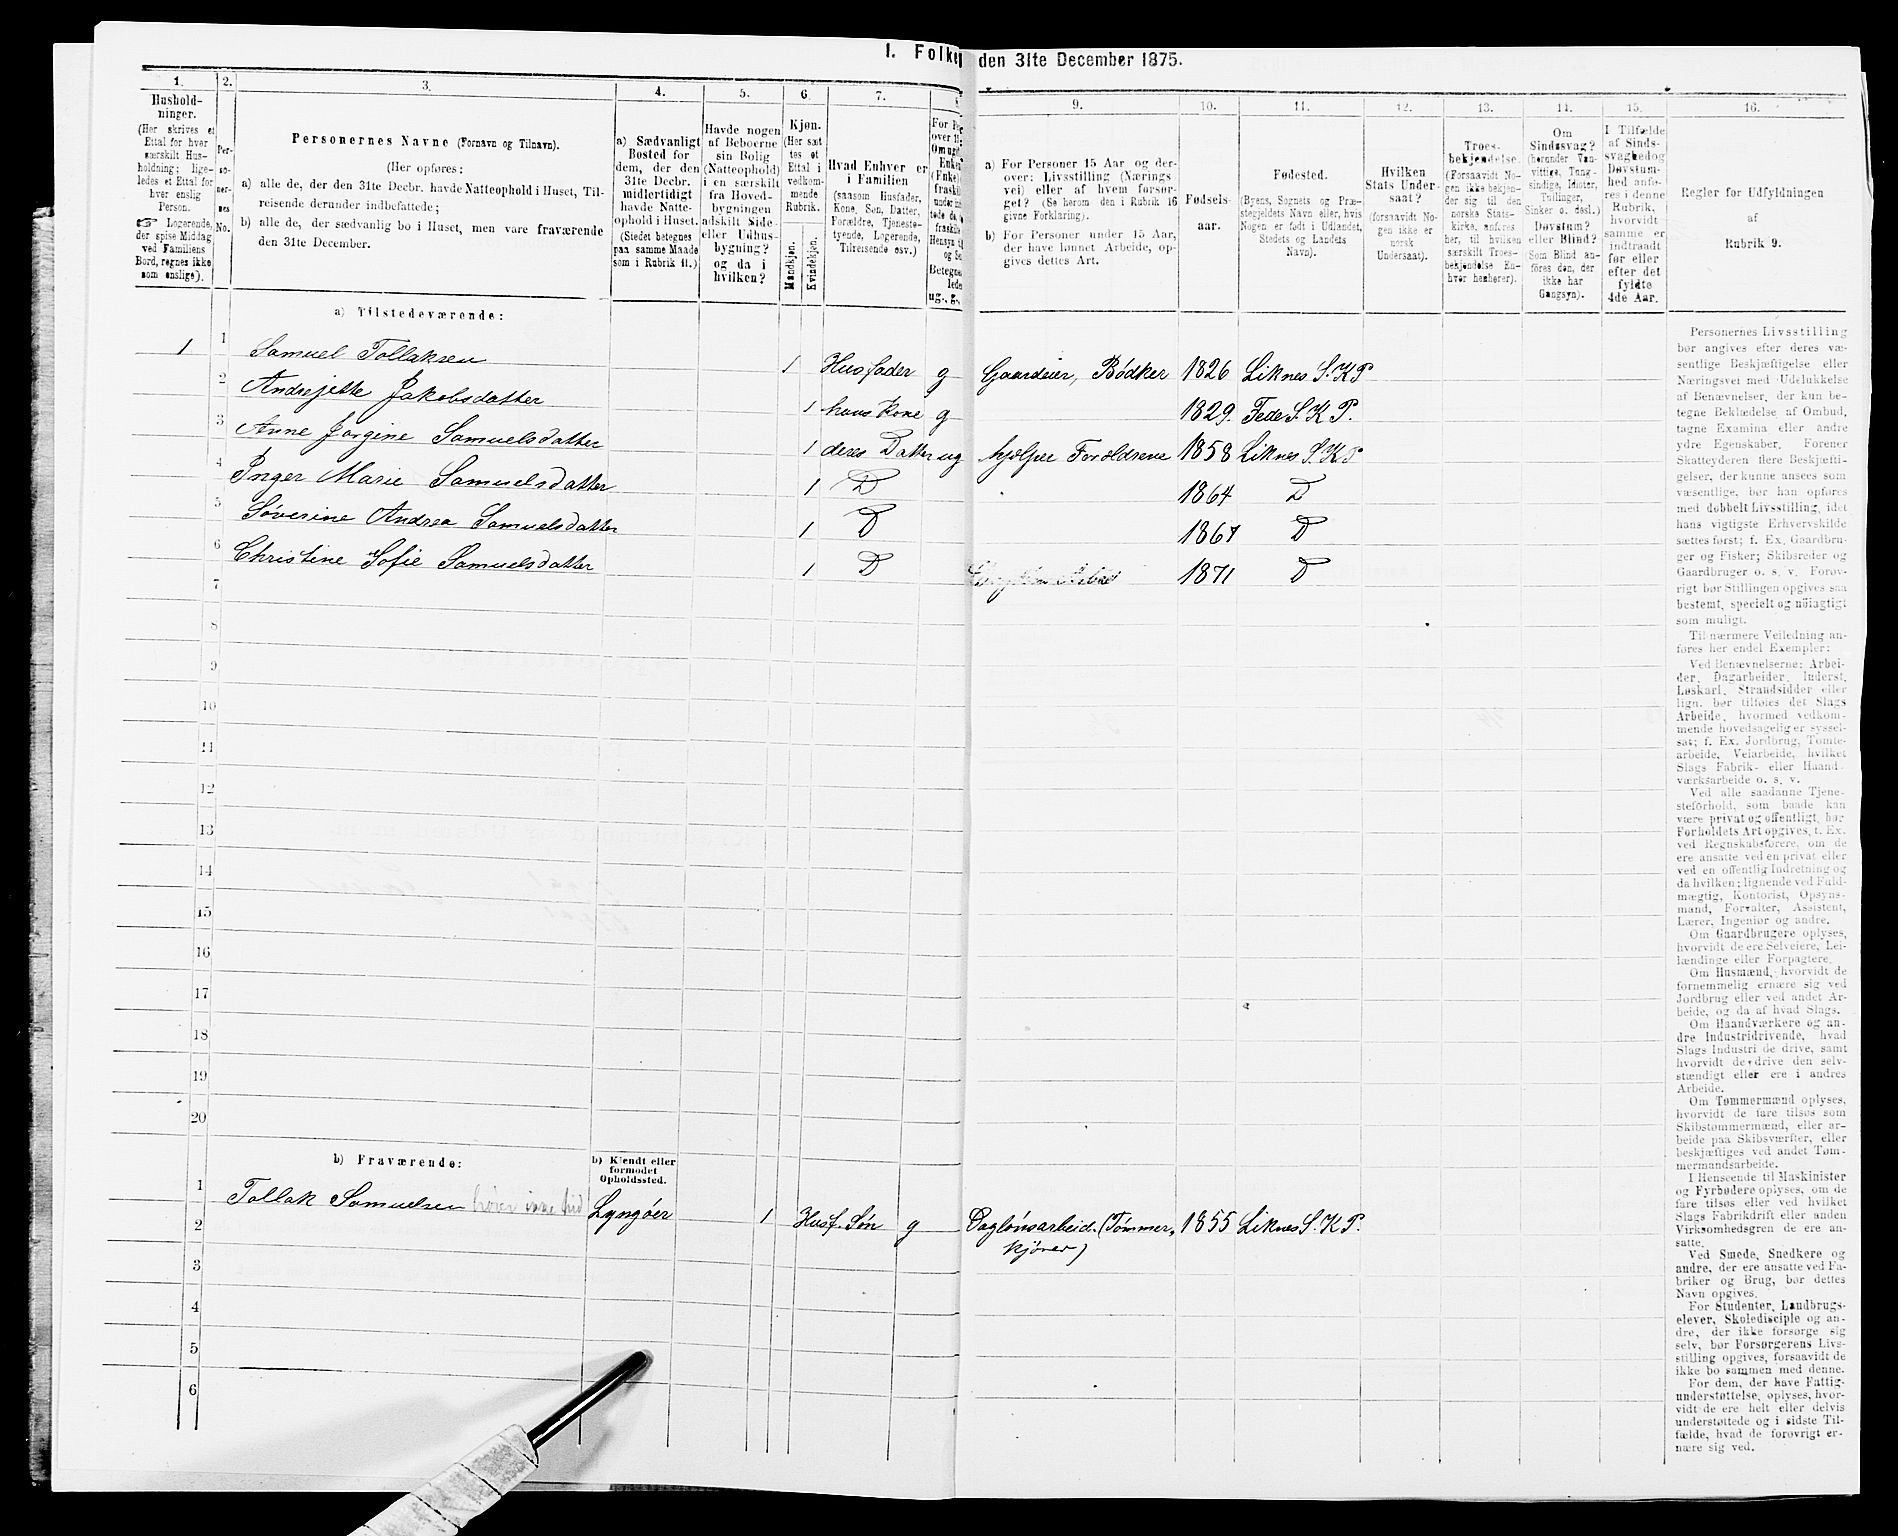 1. Folke den 31te December 1875.
1. 2. 3. 4. 5. 6. 7. 8 9. 10. 11. 12. 13. 14. 15. 16.
Hushold-
ninger.
(Her skrives et
Ettal for hver
særskilt Hus-
holdning; lige-
ledes et Ettal for
hver enslig
Person.
☞ Logerende,
der spise Middag
ved Familiens
Bord, regnes ikke
som enslige).
Per-
so-
ner-
nes
No.
Personernes Navne (Fornavn og Tilnavn).
(Her opføres:
a) alle de, der den 31te Decbr. havde Natteophold i Huset, Til-
reisende derunder indbefattede;
b) alle de, der sædvanlig bo i Huset, men vare fraværende
den 31te December.
a) Sædvanligt
Bosted for
dem, der den
31te Decbr.
midlertidigt
havde Natte-
ophold i Huset.
(Stedet betegnes
paa samme Maade
som i Rubrik 11.)
Havde nogen
af Beboerne
sin Bolig
(Natteophold)
i en særskilt
fra Hoved-
bygningen
adskilt Side-
eller Udhus-
bygning?
og da i
hvilken?
Kjøn.
(Her sæt
tes et
Ettal i
vedkom-
mende
Rubrik.
Mandkjøn.
Kvindekjøn.
Hvad Enhver er
i Familien
(saasom Husfader,
Kone, Søn, Datter,
Forældre, Tjeneste-
tyende, Logerende,
Tilreisende osv.)
For Pe
over 15
Om ug
Enke
(Enke
fraski
under in
tede d
frask
Hensyn t
og Se
Betegne
lede
ug., g.,
a) For Personer 15 Aar og der-
over: Livsstilling (Nærings
vei) eller af hvem forsør-
get? (Se herom den i Rubrik 16
givne Forklaring).
b) For Personer under 15 Aar,
der have lønnet Arbeide, op-
gives dettes Art.
Fødsels-
aar.
Fødested.
(Byens, Sognets og Præ-
stegjeldets Navn eller, hvis
Nogen er født i Udlandet,
Stedets og Landets
Navn).
Hvilken
Stats Under-
saat?
(forsaavidt No-
gen ikke er
norsk
Undersaat).
Troes-
bekjendelse.
(Forsaavidt No-
gen ikke bekjen-
der sig til den
norske Stats-
kirke, anføres
her, til hvilken
særskilt Troes-
bekjendelse En-
hver henhører).
Om
Sindssvag?
(herunder Van-
vittige, Tung-
sindige, Idioter,
Tullinger,
Sinker o. desl.)
Døvstum?
eller Blind?
(Som Blind an-
føres den, der
ikke har
Gangsyn).
I Tilfælde
af Sinds-
svaghed og
Døvstum-
hed anfø-
res i denne
Rubrik,
hvorvidt
samme er
indtraadt
før eller
efter det
fyldte
4de Aar.
Regler for Udfyldningen
af
Rubrik 9.
a) Tilstedeværende:
1 1 Samuel Tollaksen 1 Husfader g Gaardeier, Bødker 1826 Liknes S. K P
2 Andrejette Jakobsdatter 1 hans Kone g 1829. Fede S. K P.
3 Anne Jorgine Samuelsdatter 1 deres Datter ug hjelper Forældrene 1858 Liknes S. K P
4 Inger Marie Samuelsdatter 1 D 1864 D
5 Søverine Andrea Samuelsdatter 1 D 1867 D
6 Christine Sofie Samuelsdatter 1 D 1871 D
7
8
9
10
11
12
13
14
15
16
17
18
19
20
b) Fraværende:
b) Kjendt eller
formodet
Opholdssted.
1 Tollak Samuelsen hører ikke hid Lyngöer 1 Husf. Søn g Daglönsarbeid. (Tømmer- 1855 Liknes S. K P.
kjører)
2
3
4
5
6
Personernes Livsstilling
bør angives efter deres væ-
sentlige Beskjæftigelse eller
Næringsvei med Udelukkelse
af Benævnelser, der kun be-
tegne Beklædelse af Ombud,
tagne Examina eller andre
ydre Egenskaber. Forener
Skatteyderen flere Beskjæfti-
gelser, der kunne ansees som
væsentlige, bør han opføres
med dobbelt Livsstilling, idet
hans vigtigste Erhvervskilde
sættes først; f. Ex. Gaardbru-
ger og Fisker; Skibsreder og
Gaardbruger o. s. v. Forøv-
rigt bør Stillingen opgives saa
bestemt, specielt og nöiagtigt
som muligt.
Til nærmere Veiledning an-
føres her endel Exempler:
Ved Benævnelserne: Arbei-
der, Dagarbeider, Inderst,
Løskarl, Strandsidder eller
lign. bør tilføies det Slags
Arbeide, hvormed vedkom-
mende hovedsagelig er syssel-
sat; f. Ex. Jordbrug, Tømte-
arbeide, Veiarbeide, hvilket
Slags Fabrik- eller Haand-
værksarbeide o. s. v.
Ved alle saadanne Tjene-
steforhold, som baade kan
være privat og offentligt, bør
Forholdets Art opgives, t. Ex.
ved Regnskabsførere, om de
ere ansatte ved en privat eller
ved en offentlig Indretning og
da hvilken; lignende ved Fuld-
mægtig, Kontorist, Opsyns-
mand, Forvalter, Assistent,
Lærer, Ingeniør og andre.
Om Gaardbrugere oplyses,
hvorvidt de ere Selveiere, Lei-
lændinge eller Forpagtere.
Om Husmænd, hvorvidt de
fornemmelig ernære sig ved
Jordbrug eller ved andet Ar-
beide, og da af hvad Slags.
Om Haandværkere og an-
dre Industridrivende, hvad
Slags Industri de drive, samt
hvorvidt de drive den selv-
stændigt eller ere i andres
Arbeide.
Om Tømmermænd oplyses,
hvorvidt de fare tilsøs som
Skibstømmermænd, eller ar-
beide paa Skibsværfter, eller
beskjæftiges ved andet Tøm-
mermandsarbeide.
I Henseende til Maskinister
og Fyrbødere oplyses, om de
fare tilsøs eller ved hvilket
Slags Fabrikdrift eller anden
Virksomhedsgren de ere an-
satte.
Ved Smede, Snedkere og
andre, der ere ansatte ved Fa-
briker og Brug, bør dettes
Navn opgives.
For Studenter, Landbrugs-
elever, Skoledisciple og an-
dre, der ikke forsørge sig
selv, bør Forsørgerens Livs-
stilling opgives, forsaavidt de
ikke bo sammen med denne.
For dem, der have Fattig-
understøttelse, oplyses, hvor-
vidt de ere helt eller delvis
understøttede og i sidste Til-
fælde, hvad de forøvrigt er-
nære sig ved.